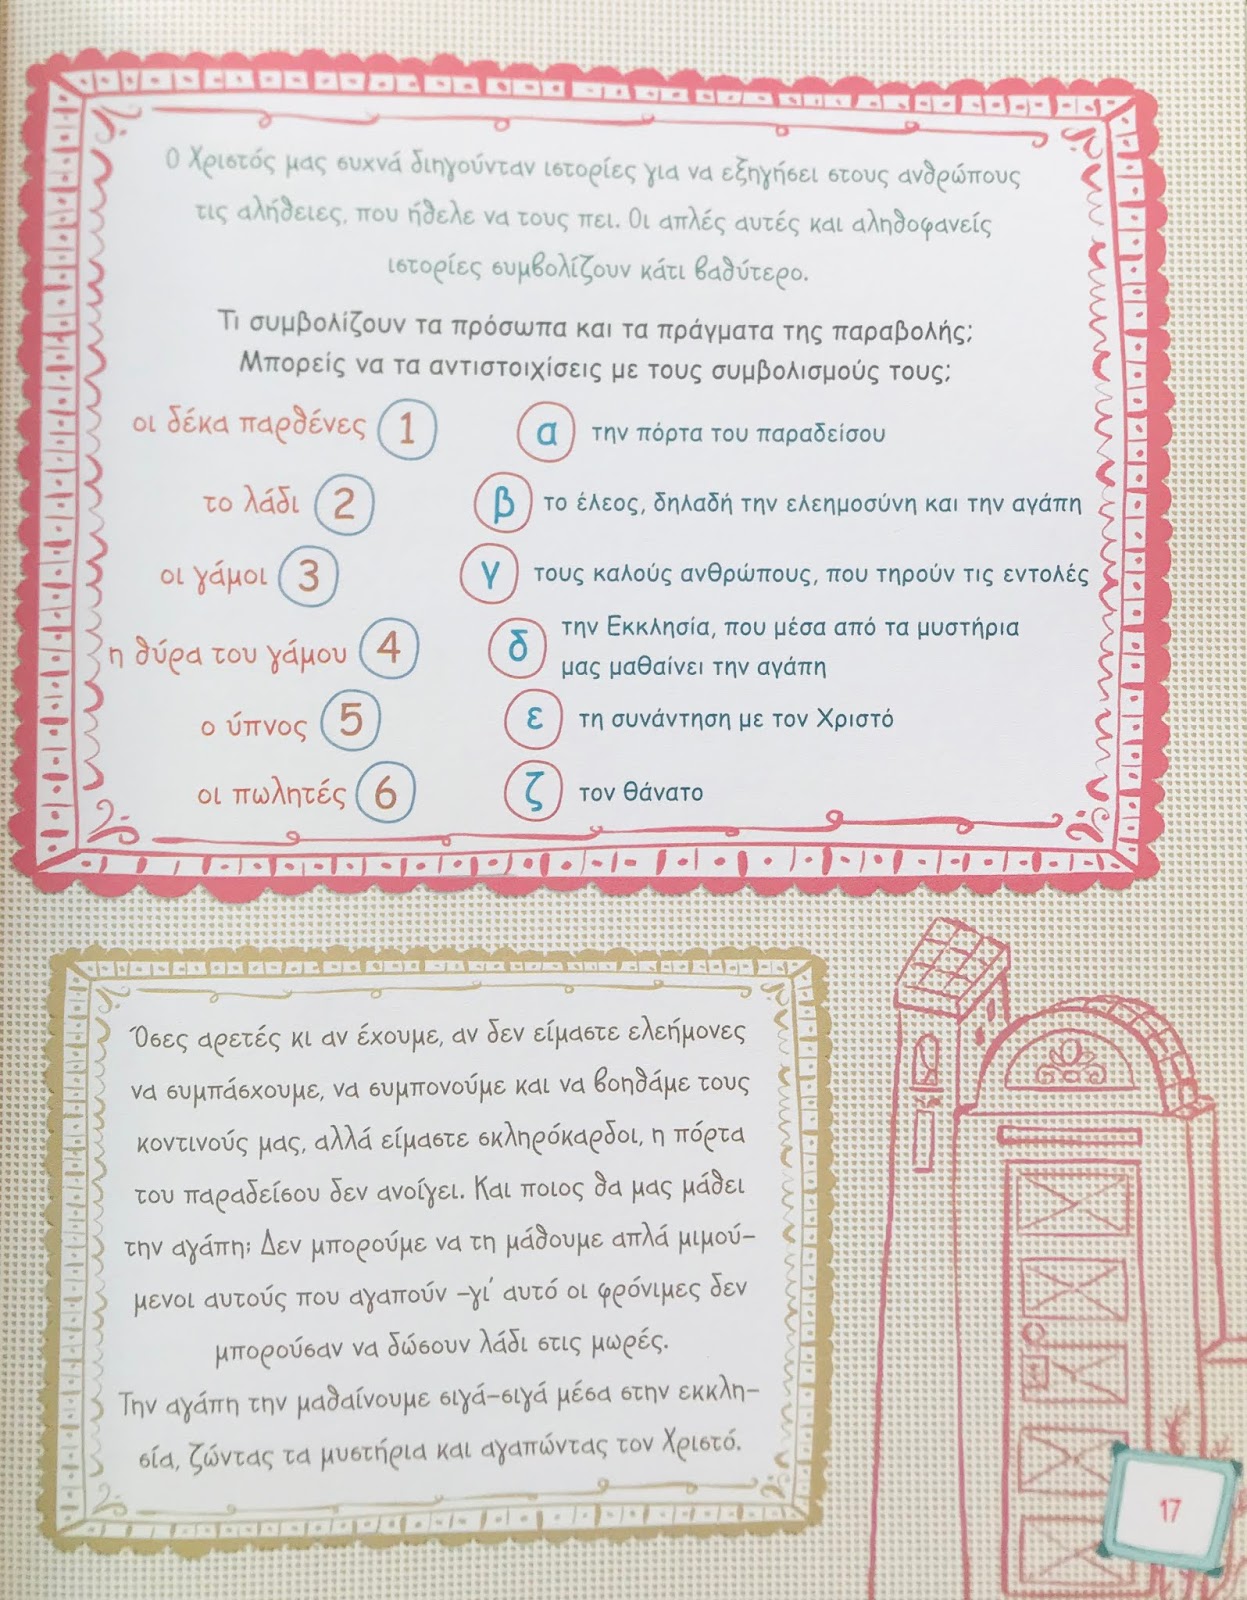 Ο Χριστός μας συχνά διηγούνταν ιστορίες για να εξηγήσει στους ανθρώπους
τις αλήθειες, που ήθελε να τους πει. Οι απλές αυτές και αληθοφανείς
ιστορίες συμβολίζουν κάτι βαθύτερο.
Τι συμβολίζουν τα πρόσωπα και τα πράγματα της παραβολής;
Μπορείς να τα αντιστοιχίσεις με τους συμβολισμούς τους;
οι δέκα παρθένες 1 α την πόρτα του παραδείσου
το λάδι 2 β το έλεος, δηλαδή την ελεημοσύνη και την αγάπη
οι γάμοι 3 γ τους καλούς ανθρώπους, που τηρούν τις εντολές
η θύρα του γάμου 4 δ την Εκκλησία, που μέσα από τα μυστήρια
μας μαθαίνει την αγάπη
ο ύπνος 5 ε τη συνάντηση με τον Χριστό
οι πωλητές 6 ζ τον θάνατο
Όσες αρετές κι αν έχουμε, αν δεν είμαστε ελεήμονες
να συμπάσχουμε, να συμπονούμε και να βοηθάμε τους
κοντινούς μας, αλλά είμαστε σκληρόκαρδοι, η πόρτα
του παραδείσου δεν ανοίγει. Και ποιος θα μας μάθει
την αγάπη; Δεν μπορούμε να τη μάθουμε απλά μιμού-
μενοι αυτούς που αγαπούν –γι' αυτό οι φρόνιμες δεν
μπορούσαν να δώσουν λάδι στις μωρές.
Την αγάπη την μαθαίνουμε σιγά-σιγά μέσα στην εκκλη-
σία, ζώντας τα μυστήρια και αγαπώντας τον Χριστό.
17